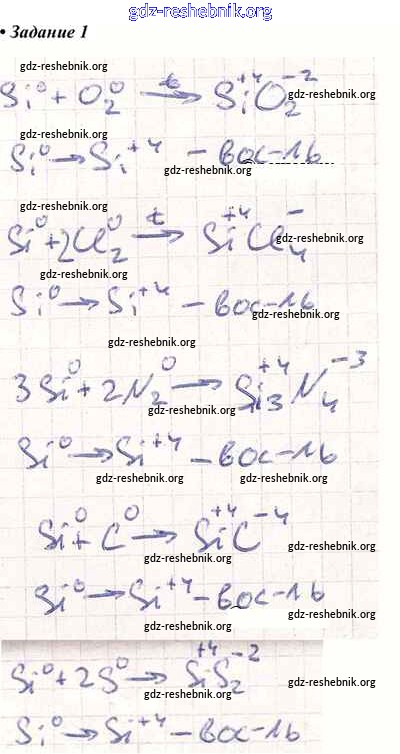 gdz-reshebnik.org
• Задание 1
gdz-reshebnik.org
Si⁰ + O₂⁰ —t→ Si⁺⁴O₂⁻²
gdz-reshebnik.org
gdz-reshebnik.org
Si⁰ → Si⁺⁴ – вос-ль
gdz-reshebnik.org
gdz-reshebnik.org
Si⁰ + 2Cl₂⁰ —t→ Si⁺⁴Cl₄⁻
gdz-reshebnik.org
gdz-reshebnik.org
Si⁰ → Si⁺⁴ – вос-ль
gdz-reshebnik.org
gdz-reshebnik.org
3Si⁰ + 2N₂⁰ → Si₃⁺⁴N₄⁻³
gdz-reshebnik.org
Si⁰ → Si⁺⁴ – вос-ль
gdz-reshebnik.org gdz-reshebnik.org
Si⁰ + C⁰ → Si⁺⁴C⁻⁴
gdz-reshebnik.org
gdz-reshebnik.org
Si⁰ → Si⁺⁴ – вос-ль
gdz-reshebnik.org
gdz-reshebnik.org
Si⁰ + 2S⁰ → Si⁺⁴S₂⁻²
gdz-reshebnik.org
gdz-reshebnik.org
Si⁰ → Si⁺⁴ – вос-ль